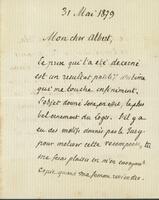 31 Mai 1879
Mon cher Albert,
Le prix qui t'a été décerné
est un résultat positif
qui me touche infiniment.
l'objet donné sera, je
du logis. S'il y a
eu des motifs donnés par le Jury
pour motiver cette récompense, tu
me feras plaisir en m'en envoyant
Copie, quand